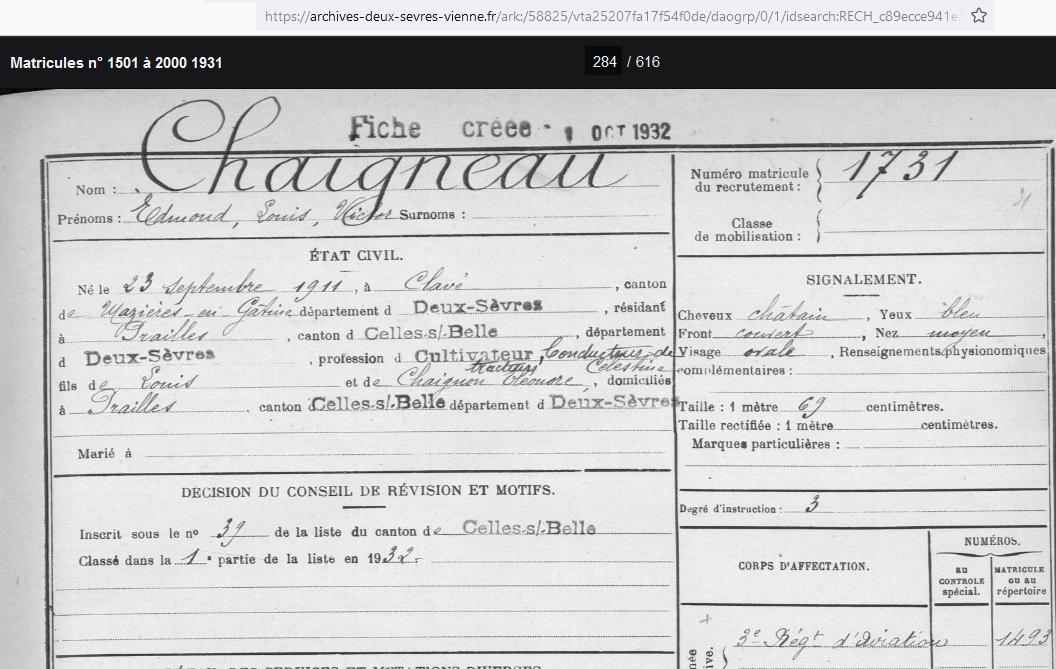 https://archives-deux-sevres-vienne.fr/ark:/58825/vta25207fa17f54f0de/daogrp/0/1/idsearch:RECH_c89ecce941e
Matricules n° 1501 à 2000 1931
284 / 616
Fiche créée - 1 OCT 1932
Nom : Chaigneau
Prénoms : Edmond, Louis, Victor Surnoms :
ÉTAT CIVIL.
Né le 23 septembre 1911, à Clavé, canton
de Mazières-en-Gâtine département d Deux-Sèvres, résidant
à Prailles, canton d Celles-s/-Belle, département
d Deux-Sèvres, profession d Cultivateur, Conducteur de
tracteurs Célestine
fils de Louis et de Chaignon Eléonore, domiciliés
à Prailles, canton Celles-s/-Belle département d Deux-Sèvres
Marié à
DÉCISION DU CONSEIL DE RÉVISION ET MOTIFS.
Inscrit sous le no 39 de la liste du canton de Celles-s/-Belle
Classé dans la 1e partie de la liste en 1932.
Numéro matricule
du recrutement : 1731
31
Classe
de mobilisation :
SIGNALEMENT.
Cheveux châtain, Yeux bleu
Front couvert, Nez moyen,
Visage ovale, Renseignements physionomiques
complémentaires :
Taille : 1 mètre 69 centimètres.
Taille rectifiée : 1 mètre centimètres.
Marques particulières :
Degré d'instruction : 3
CORPS D'AFFECTATION.
NUMÉROS.
au
CONTROLE
spécial.
MATRICULE
ou au
répertoire
3e Régt d'aviation 1493